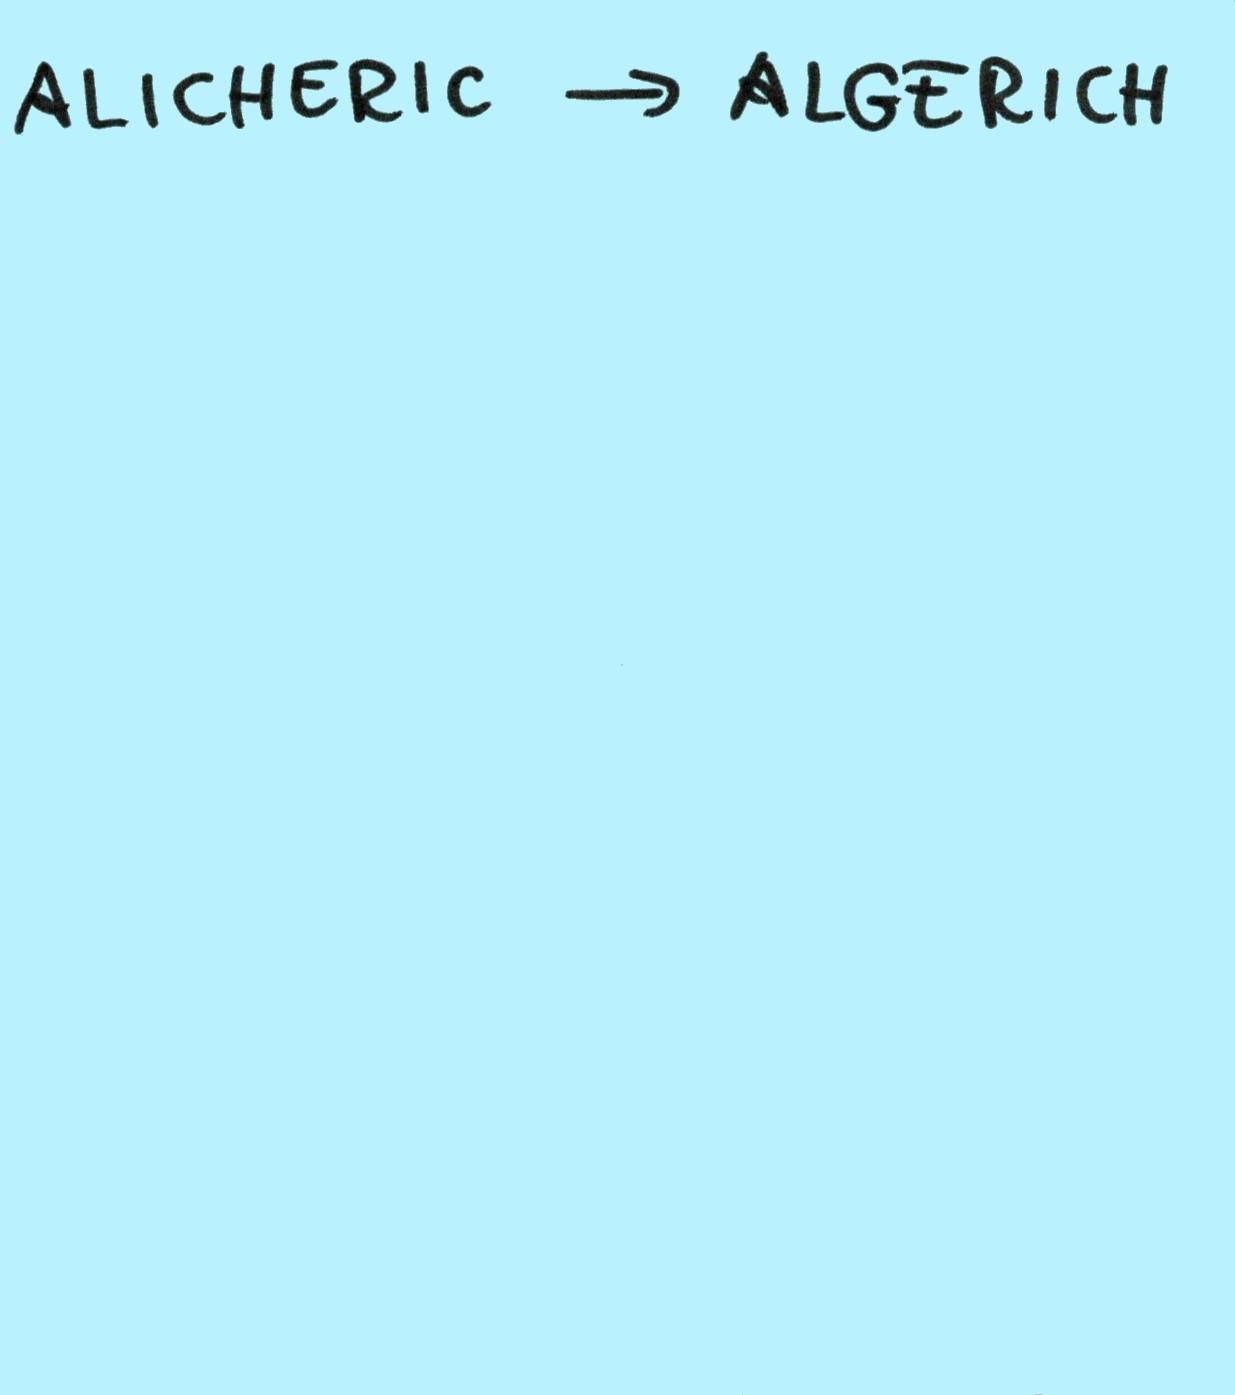 ALICHERIC → ALGERICH